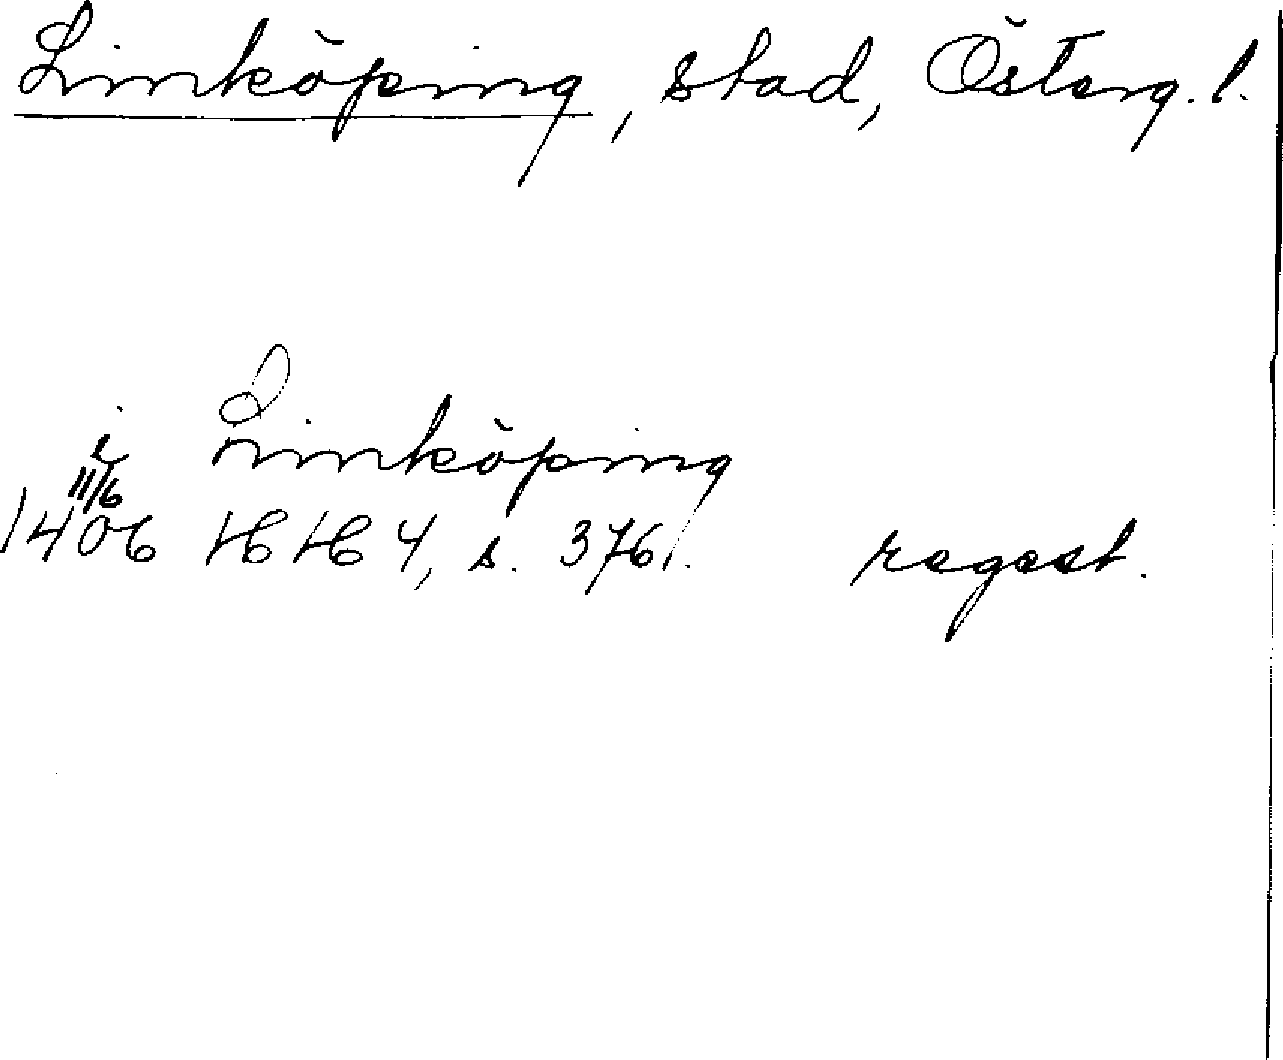 Linköping, stad, Österg. l.
i Linköping
11/6
1406 HH 4, s. 376. regest.